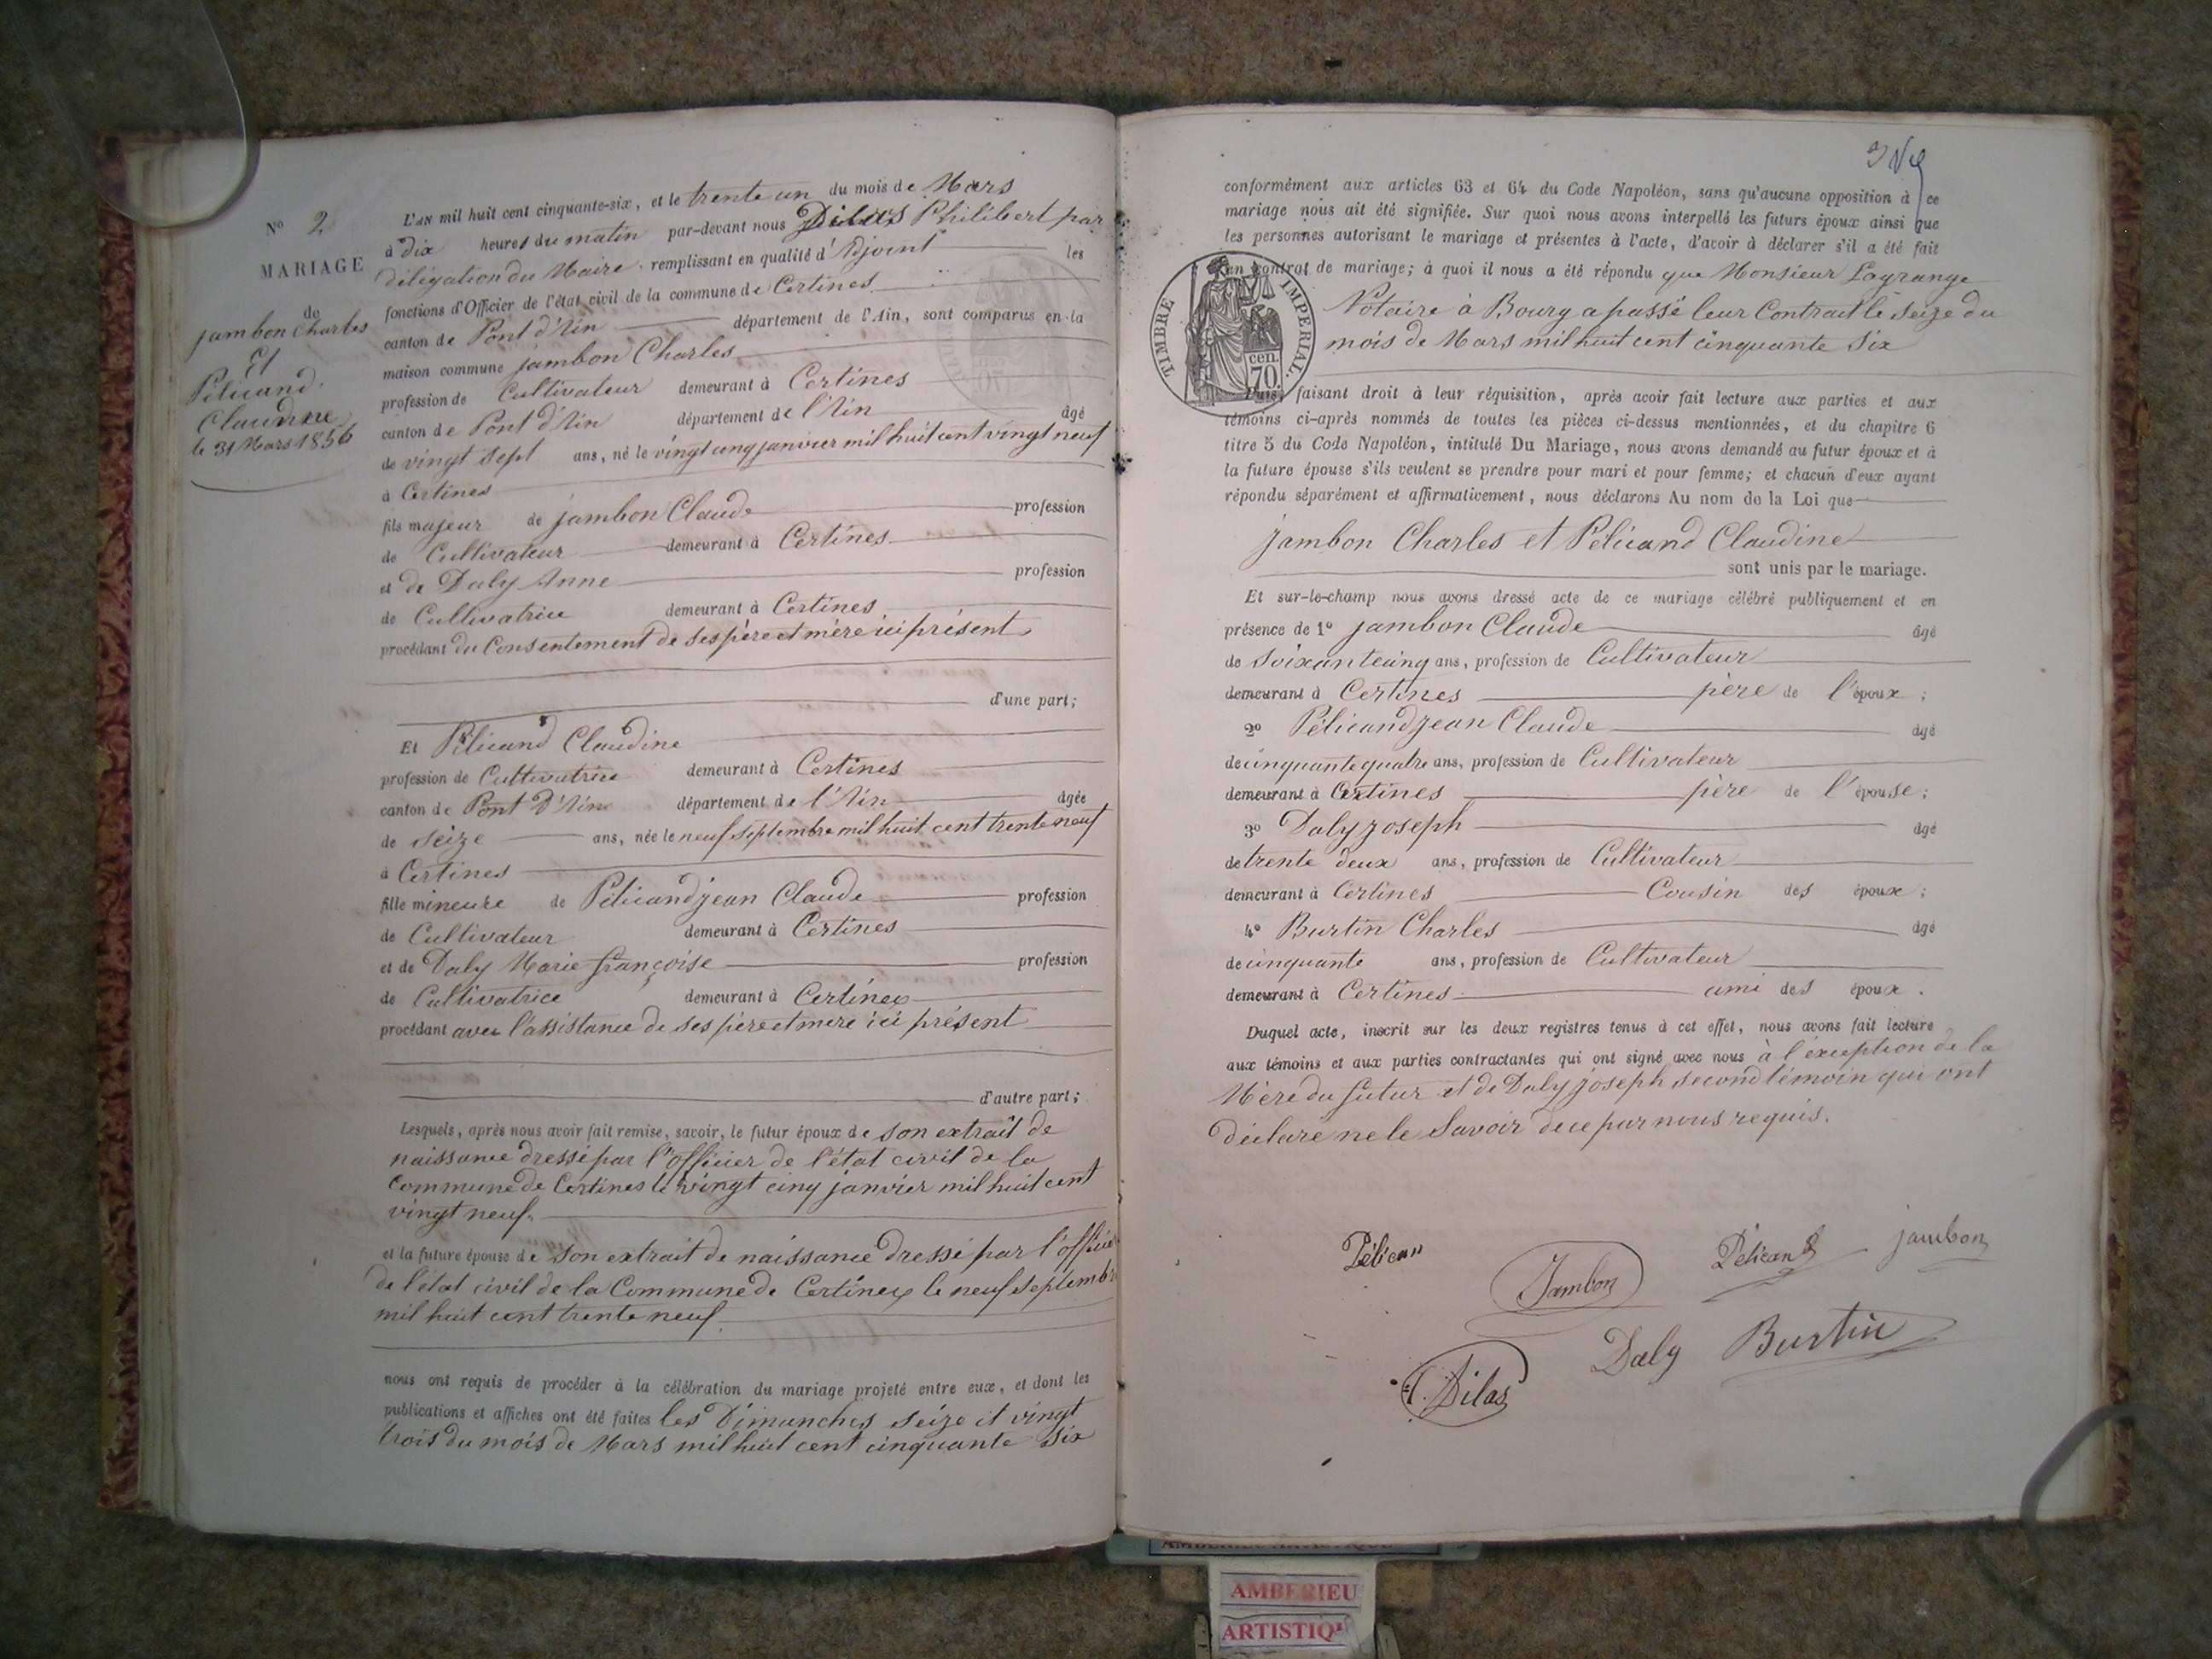 N° 2
MARIAGE
de
jambon Charles
Et
Pélicand
Claudine
le 31 Mars 1856
L'AN mil huit cent cinquante-six, et le trente un du mois de Mars
à dix heures du matin par-devant nous Dilas Philibert par
délégation du Maire. remplissant en qualité d'Adjoint les
fonctions d'Officier de l'état civil de la commune de Certines
canton de Pont d'Ain département de l'Ain, sont comparus en la
maison commune jambon Charles
profession de Cultivateur demeurant à Certines
canton de Pont d'Ain département de l'Ain âgé
de vingt sept ans, né le vingt cinq janvier mil huit cent vingt neuf
à Certines
fils majeur de jambon Claude profession
de Cultivateur demeurant à Certines
et de Daly Anne profession
de Cultivatrice demeurant à Certines
procédant du Consentement de ses père et mère ici présent
d'une part;
Et Pélicand Claudine
profession de Cultivatrice demeurant à Certines
canton de Pont D'Ain département de l'Ain âgée
de seize ans, née le neuf septembre mil huit cent trente neuf
à Certines
fille mineure de Pélicand jean Claude profession
de Cultivateur demeurant à Certines
et de Daly Marie françoise profession
de Cultivatrice demeurant à Certines
procédant avec l'assistance de ses père et mere ici présent
d'autre part;
Lesquels, après nous avoir fait remise, savoir, le futur époux de son extrait de
naissance dressé par l'officier de l'état civil de la
Commune de Certines le vingt cinq janvier mil huit cent
vingt neuf.
et la future épouse de son extrait de naissance dressé par l'officier
de l'état civil de la Commune de Certines le neuf septembre
mil huit cent trente neuf.
nous ont requis de procéder à la célébration du mariage projeté entre eux, et dont les
publications et affiches ont été faites les Dimanches seize et vingt
trois du mois de Mars mil huit cent cinquante six
conformément aux articles 63 et 64 du Code Napoléon, sans qu'aucune opposition à ce
mariage nous ait été signifiée. Sur quoi nous avons interpellé les futurs époux ainsi que
les personnes autorisant le mariage et présentes à l'acte, d'avoir à déclarer s'il a été fait
un contrat de mariage; à quoi il nous a été répondu que Monsieur Lagrange
Notaire à Bourg a passé leur Contrat le seize du
mois de Mars mil huit cent cinquante six
TIMBRE IMPERIAL.
cen.
70.
Puis, faisant droit à leur réquisition, après avoir fait lecture aux parties et aux
témoins ci-après nommés de toutes les pièces ci-dessus mentionnées, et du chapitre 6
titre 5 du Code Napoléon, intitulé Du Mariage, nous avons demandé au futur époux et à
la future épouse s'ils veulent se prendre pour mari et pour femme; et chacun d'eux ayant
répondu séparément et affirmativement, nous déclarons Au nom de la Loi que
jambon Charles et Pélicand Claudine
sont unis par le mariage.
Et sur-le-champ nous avons dressé acte de ce mariage célébré publiquement et en
présence de 1° jambon Claude âgé
de soixante cinq ans, profession de Cultivateur
demeurant à Certines père de l'époux;
2° Pélicand jean Claude âgé
de cinquante quatre ans, profession de Cultivateur
demeurant à Certines père de l'épouse;
3° Daly joseph âgé
de trente deux ans, profession de Cultivateur
demeurant à Certines Cousin des époux;
4° Burtin Charles âgé
de cinquante ans, profession de Cultivateur
demeurant à Certines ami des époux.
Duquel acte, inscrit sur les deux registres tenus à cet effet, nous avons fait lecture
aux témoins et aux parties contractantes qui ont signé avec nous à l'exception de la
Mère du futur et de Daly joseph second témoin qui ont
déclaré ne le Savoir de ce par nous requis.
Pélican
Jambon
Pélicand
jambon
Daly
Burtin
Dilas
AMBERIEU ARTISTIQUE
AMBERIEU
ARTISTIQ